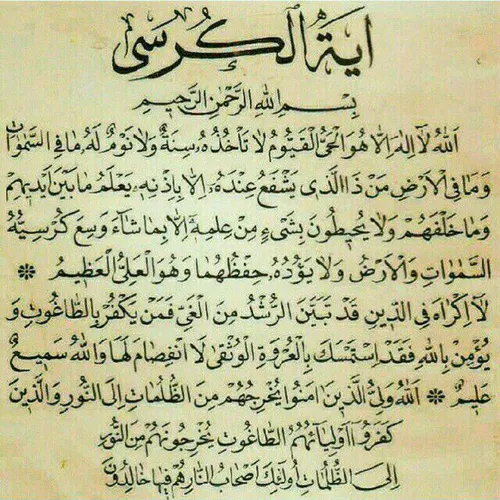 اية الكرسى
بِسْمِ اللهِ الرَّحْمٰنِ الرَّحِيمِ
اَللهُ لَا اِلٰهَ اِلَّا هُوَ الْحَيُّ الْقَيُّومُ لَا تَأْخُذُهُ سِنَةٌ وَلَا نَوْمٌ لَهُ مَا فِى السَّمٰوَاتِ
وَمَا فِى الْاَرْضِ مَنْ ذَا الَّذِى يَشْفَعُ عِنْدَهُ اِلَّا بِاِذْنِهِ يَعْلَمُ مَا بَيْنَ اَيْدِيهِمْ
وَمَا خَلْفَهُمْ وَلَا يُحِيطُونَ بِشَىْءٍ مِنْ عِلْمِهِ اِلَّا بِمَا شَاءَ وَسِعَ كُرْسِيُّهُ
السَّمٰوَاتِ وَالْاَرْضَ وَلَا يَؤُدُهُ حِفْظُهُمَا وَهُوَ الْعَلِىُّ الْعَظِيمُ ❊
لَا اِكْرَاهَ فِى الدِّينِ قَدْ تَبَيَّنَ الرُّشْدُ مِنَ الْغَىِّ فَمَنْ يَكْفُرْ بِالطَّاغُوتِ وَ
يُؤْمِنْ بِاللهِ فَقَدِ اسْتَمْسَكَ بِالْعُرْوَةِ الْوُثْقٰى لَا انْفِصَامَ لَهَا وَاللهُ سَمِيعٌ
عَلِيمٌ ❊ اَللهُ وَلِىُّ الَّذِينَ اٰمَنُوا يُخْرِجُهُمْ مِنَ الظُّلُمَاتِ اِلَى النُّورِ وَالَّذِينَ
كَفَرُوا اَوْلِيَاؤُهُمُ الطَّاغُوتُ يُخْرِجُونَهُمْ مِنَ النُّورِ
اِلَى الظُّلُمَاتِ اُولٰئِكَ اَصْحَابُ النَّارِ هُمْ فِيهَا خَالِدُونَ